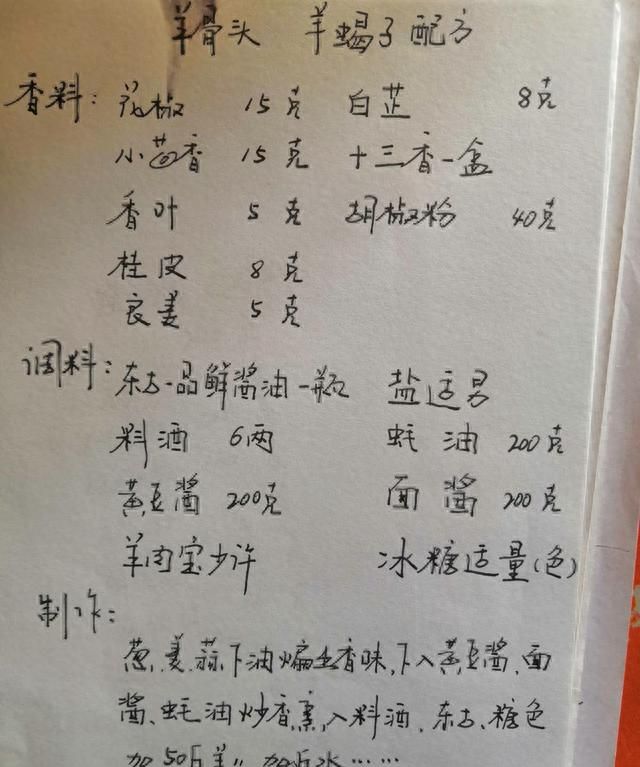 羊骨头 羊蝎子配方
香料: 花椒 15克 白芷 8克
小茴香 15克 十三香一盒
香叶 5克 胡椒粉 40克
桂皮 8克
良姜 5克
调料: 东古一品鲜酱油一瓶 盐适量
料酒 6两 蚝油 200克
黄豆酱 200克 面酱 200克
羊肉宝少许 冰糖适量(色)
制作:
葱、姜、蒜下油煸出香味,下入黄豆酱、面
酱、蚝油炒香,入料酒、东古、糖色
加50斤